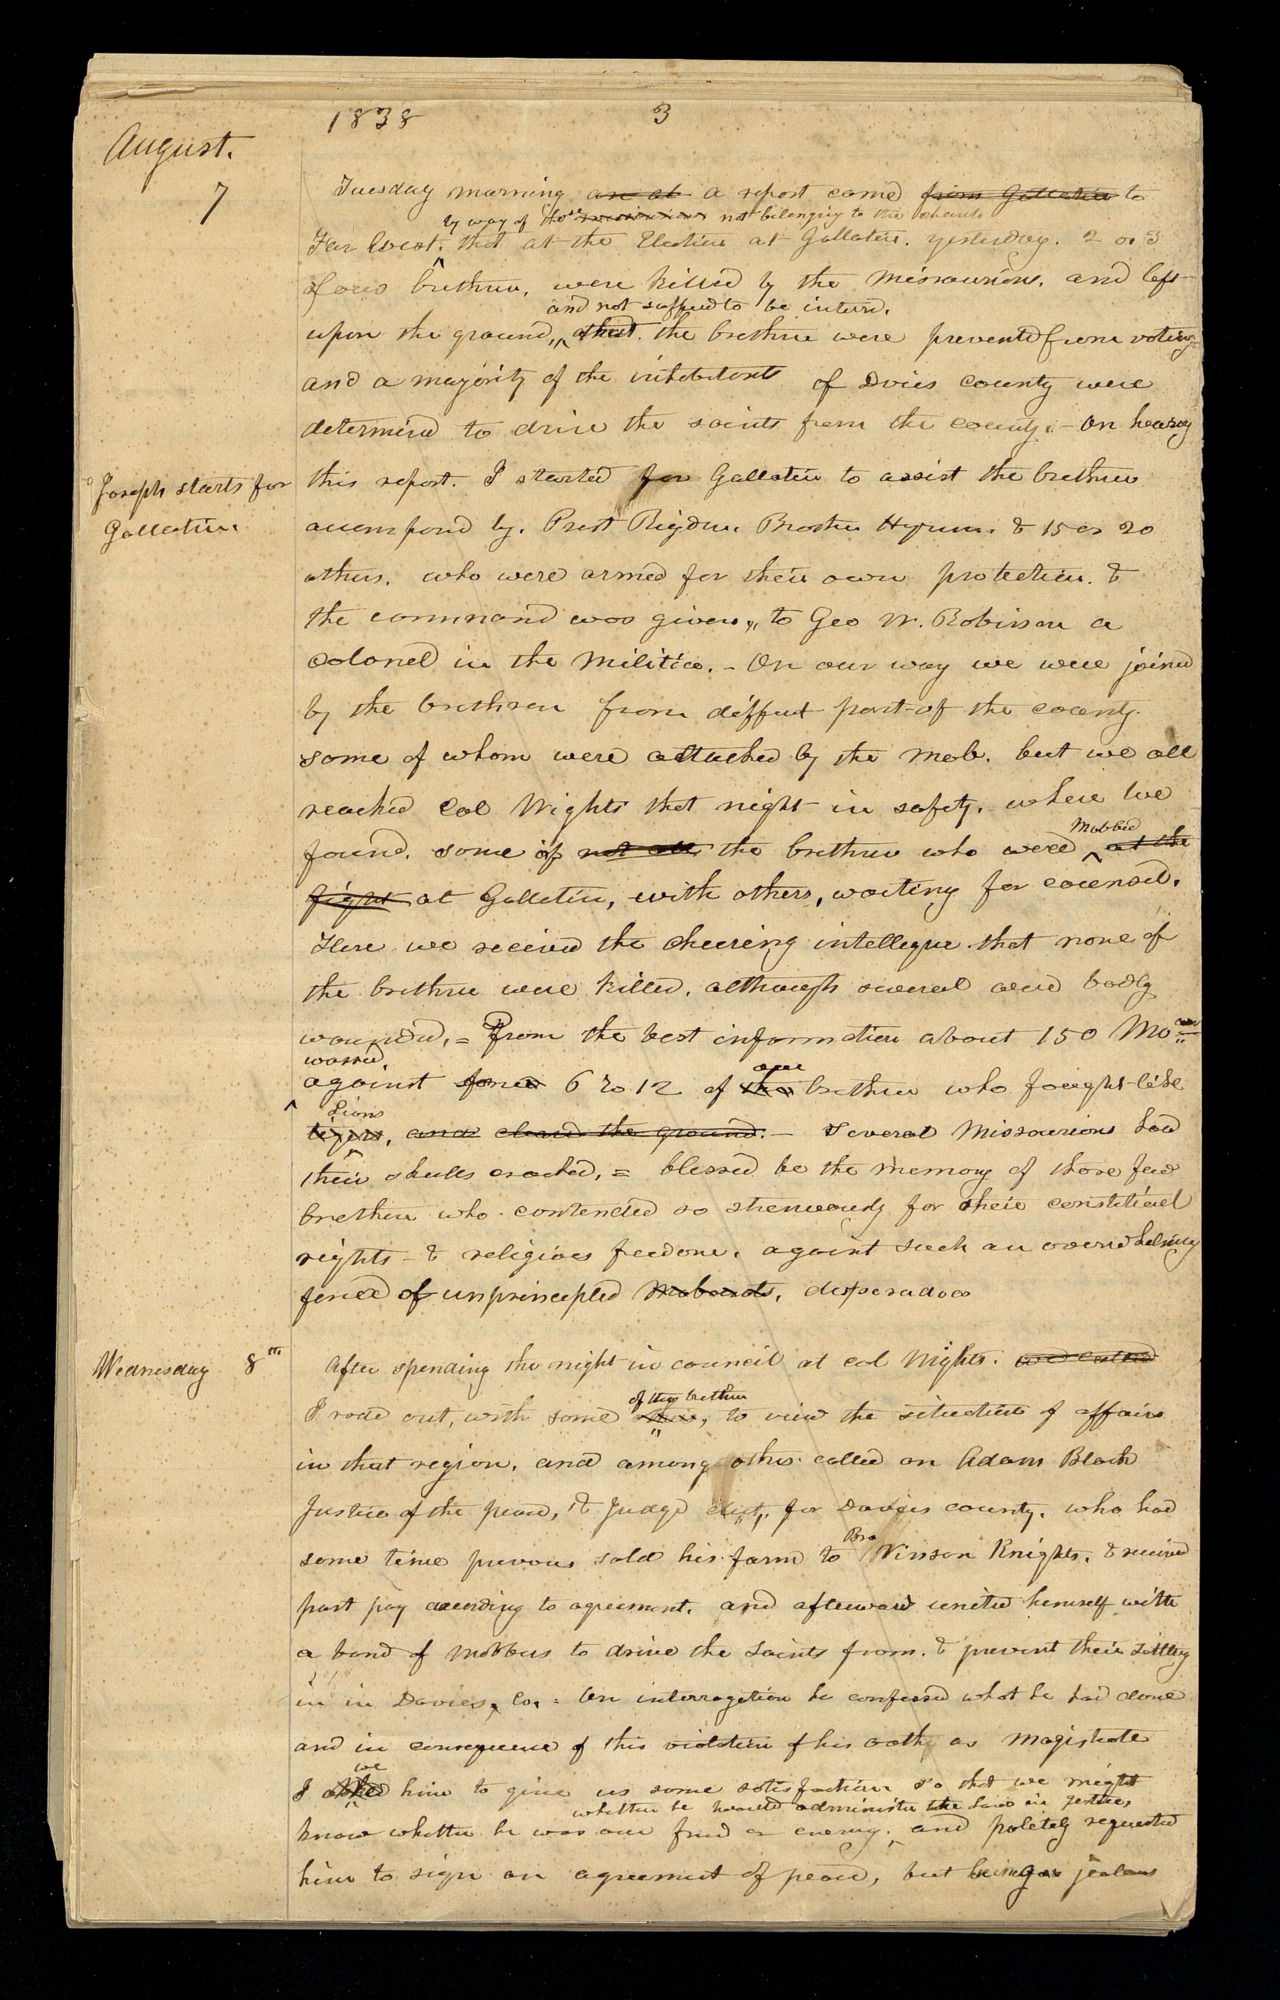 1838 3
August.
7
Tuesday morning a report came to
by way of those not belonging to the church
Far West. that at the Election at Gallatin. yesterday. 2 or 3
of our brethren, were killed by the Missourians, and left
and not suffered to be interd,
upon the ground, that the brethren were prevented from voting
and a majority of the inhabitants of Dvies county were
determined to drive the saints from the county.- On hearing
Joseph starts for
Gallatin.
this report. I started for Gallatin to assist the brethren
accompanied by. Prest Rigdon. Brother Hyrum. & 15 or 20
others. who were armed for their own protection. &
the command was given, to Geo W. Robinson a
colonel in the Militia. - On our way we were joined
by the brethren from diffent part of the county.
some of whom were attacked by the mob. but we all
reached Col Wights that night in safety. where we
Mobbed
found. some of not all the brethren who were at the
fight at Gallatin, with others, waiting for council.
Here we received the cheering intellegnce that none of
the brethren were killed, although several were badly
wounded, = From the best information about 150 Mo
warred, our
against 6 to 12 of the brethren who fought like
Lions
tigers, and cleared the ground. - Several Missourians had
their skulls cracked, = blessed be the memory of those few
brethren who contended so strenuously for their constitunal
rights - & religious freedom. againt such an overwhelming
force of unprincipled Mobocrats, desperadoes
Wednesday 8th
After spending the night in council at Col Wights. and called
of the brethren
I rode out, with some to view the situation of affairs
in that region, and among others called on Adam Black
Justice of the peace, & Judge elect, for Davies county, who had
Bro
some time prevous sold his farm to Vinson Knights, & received
part pay according to agreement, and afterward united himself with
a band of mobbers to drive the saints from. & prevent their settling
in in Davies, Co, = On interrogation he confessed what he had done
and in consequence of this violation of his oath as Magistrate
we
I asked him to give us some satisfaction so that we might
whether he would administer the Law in justice,
know whether he was our friend or enemy. and politely requested
him to sign an agreement of peace, but being jealous